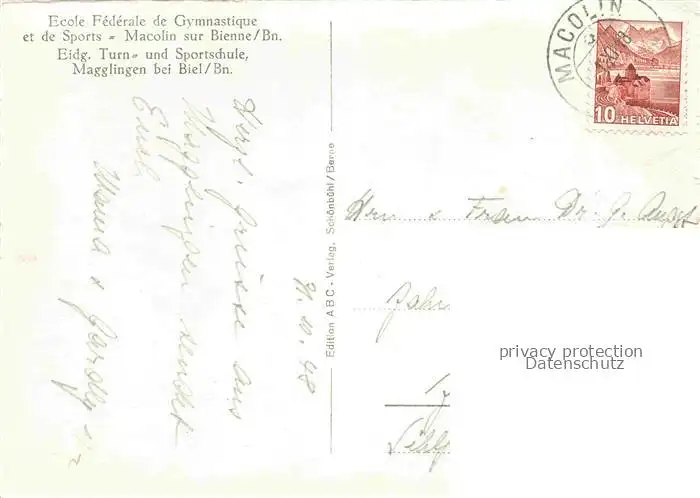 Ecole Fédérale de Gymnastique
et de Sports - Macolin sur Bienne/Bn.
Eidg. Turn- und Sportschule,
Magglingen bei Biel/Bn.
MACOLIN
10 HELVETIA
Herzl. Grüsse aus
Magglingen sendet
Euch
Mama &
31.10.48
Edition ABC - Verlag, Schönbühl/Berne
Herr & Frau Dr. G.
privacy protection
Datenschutz